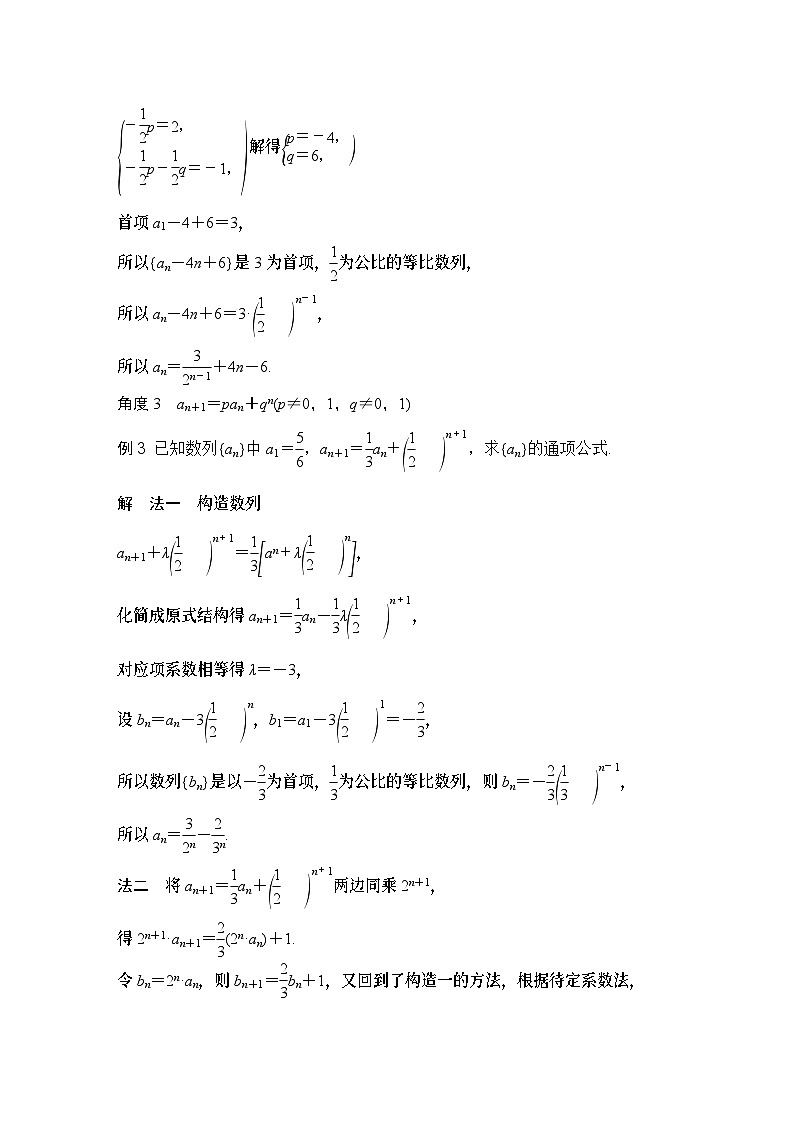 {-1/2p=2, -1/2p-1/2q=-1,)解得{p=-4, q=6,)
首项 a₁-4+6=3,
所以{aₙ-4n+6}是 3 为首项，1/2为公比的等比数列，
所以 aₙ-4n+6=3·(1/2)ⁿ⁻¹,
所以 aₙ=3/2ⁿ⁻¹+4n-6.
角度 3　aₙ₊₁=paₙ+qⁿ(p≠0，1，q≠0，1)
例 3 已知数列{aₙ}中 a₁=5/6，aₙ₊₁=1/3aₙ+(1/2)ⁿ⁺¹，求{aₙ}的通项公式.
解　法一　构造数列
aₙ₊₁+λ(1/2)ⁿ⁺¹=1/3[aⁿ+λ(1/2)ⁿ],
化简成原式结构得 aₙ₊₁=1/3aₙ-1/3λ(1/2)ⁿ⁺¹,
对应项系数相等得 λ=-3,
设 bₙ=aₙ-3(1/2)ⁿ，b₁=a₁-3(1/2)¹=-2/3,
所以数列{bₙ}是以-2/3为首项，1/3为公比的等比数列，则 bₙ=-2/3(1/3)ⁿ⁻¹,
所以 aₙ=3/2ⁿ-2/3ⁿ.
法二　将 aₙ₊₁=1/3aₙ+(1/2)ⁿ⁺¹两边同乘 2ⁿ⁺¹,
得 2ⁿ⁺¹·aₙ₊₁=2/3(2ⁿ·aₙ)+1.
令 bₙ=2ⁿ·aₙ，则 bₙ₊₁=2/3bₙ+1，又回到了构造一的方法，根据待定系数法，